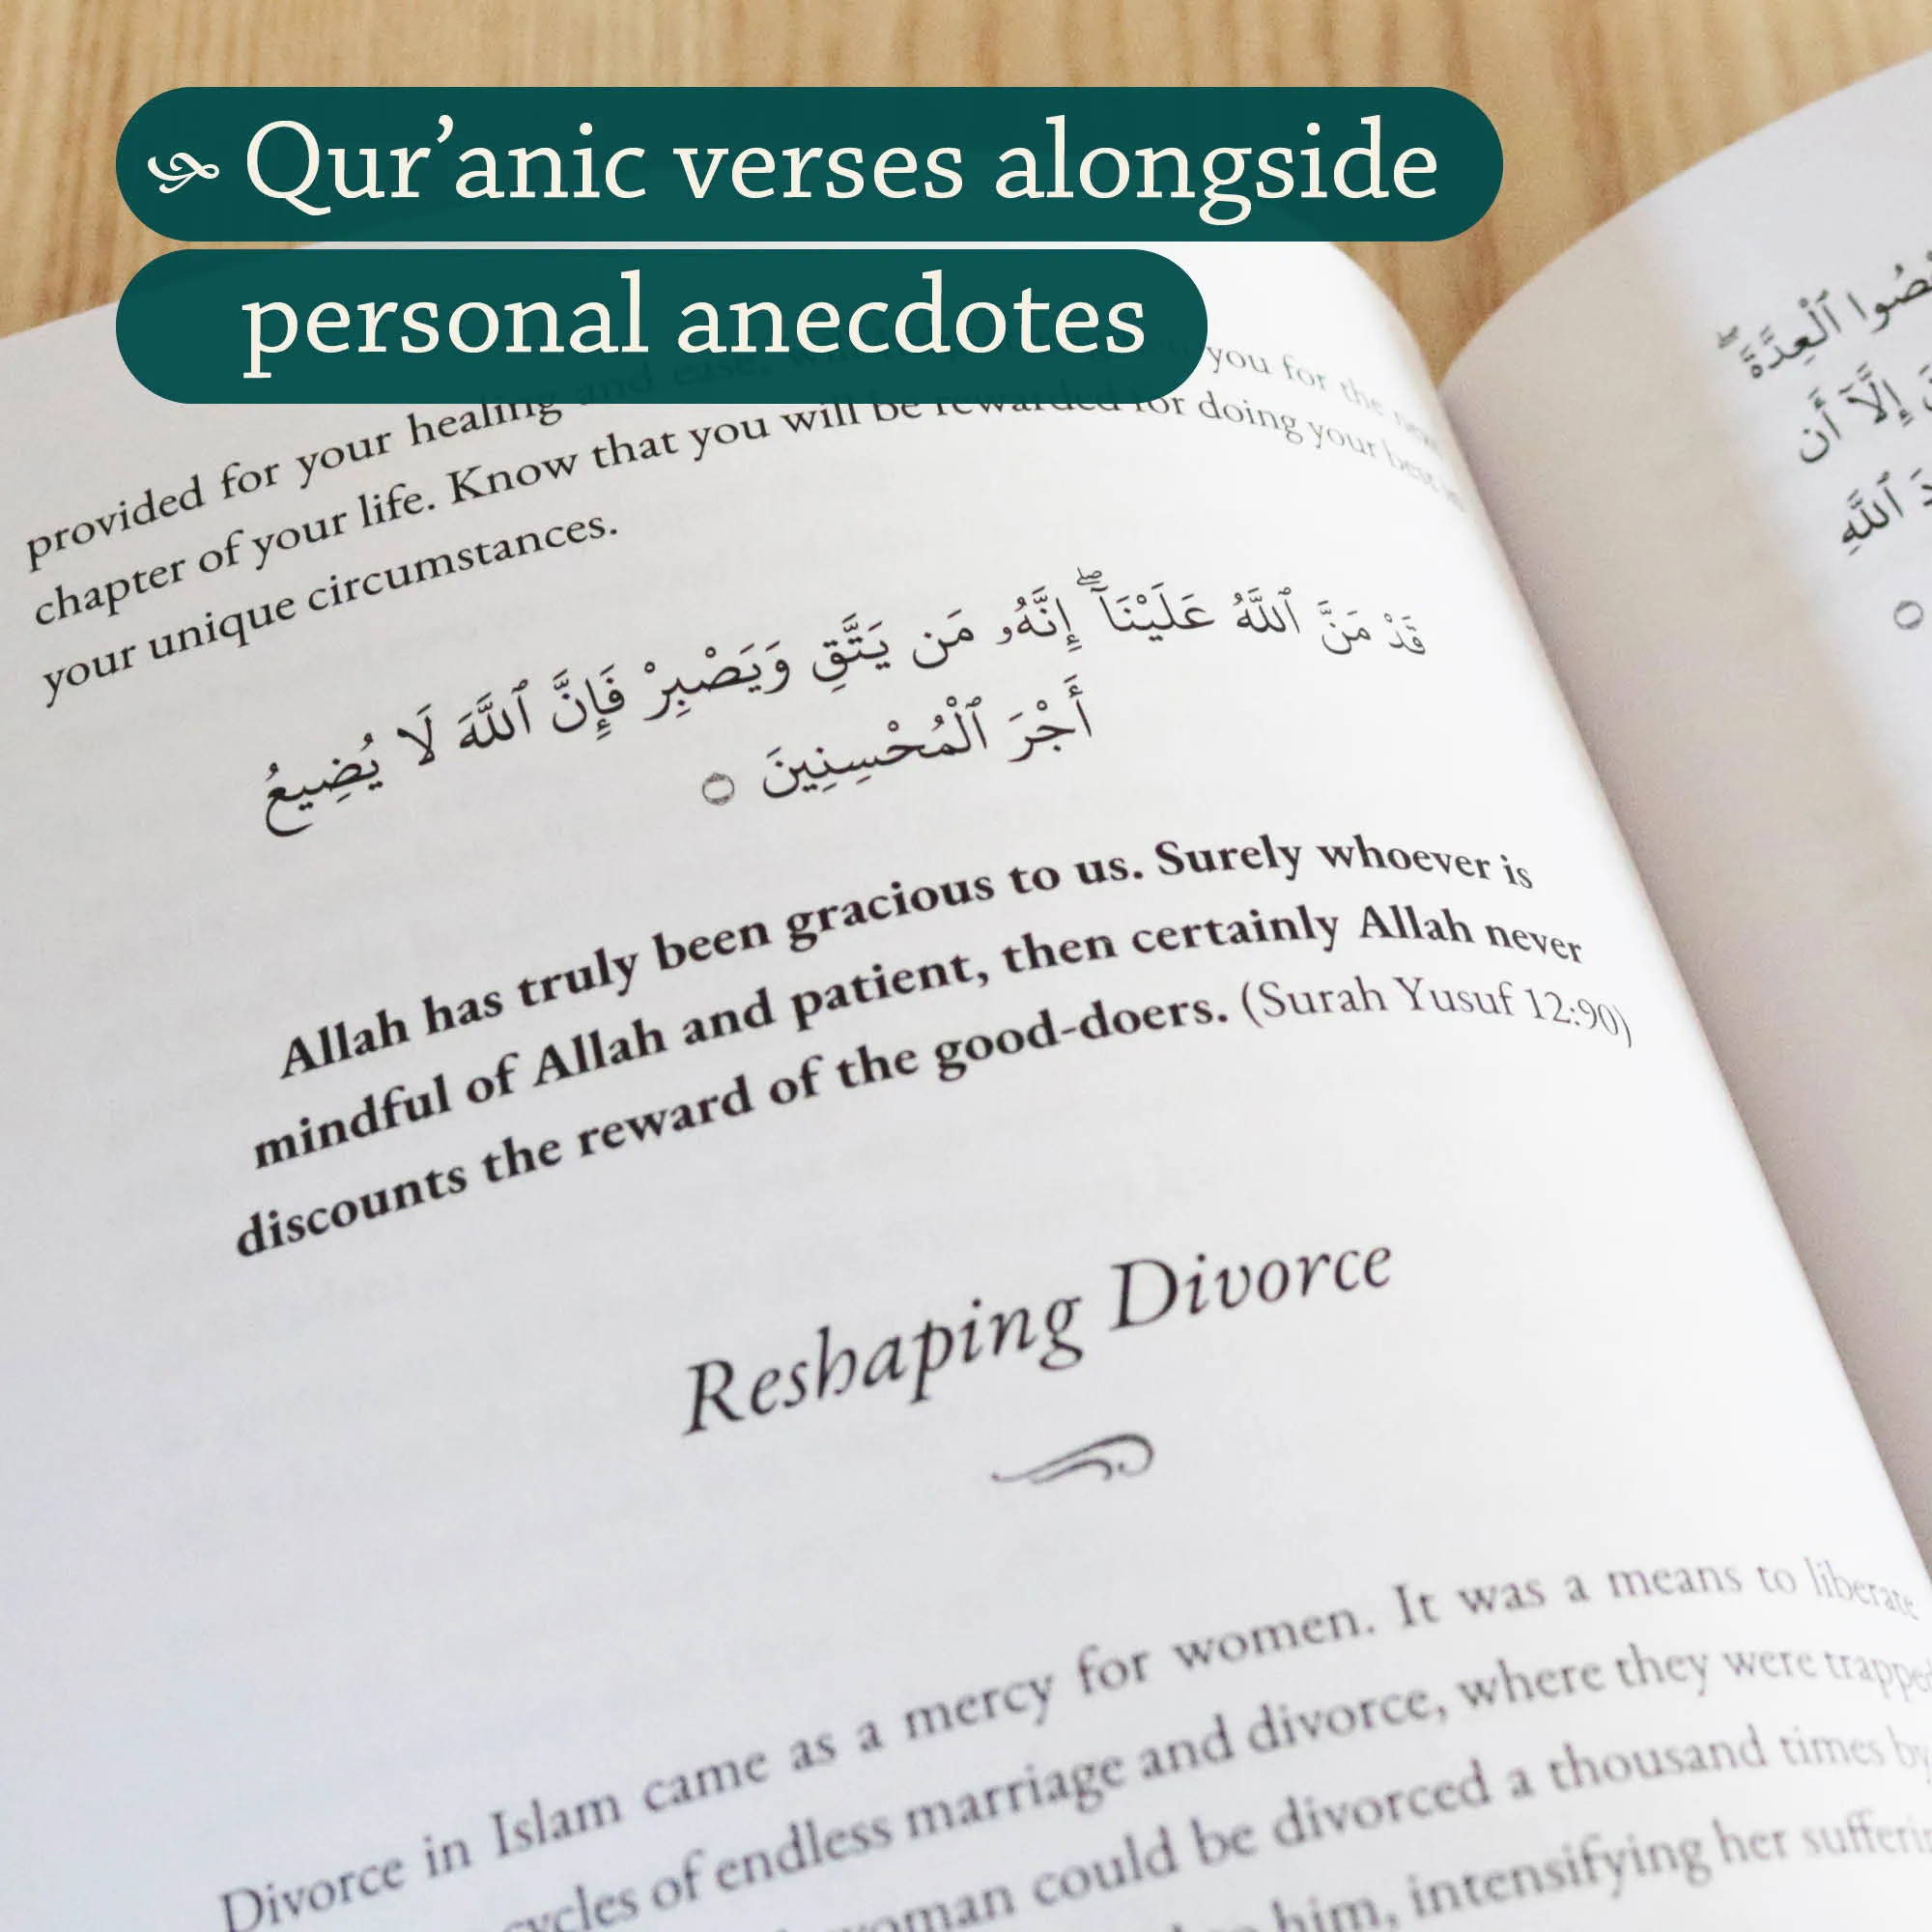 Qur’anic verses alongside
personal anecdotes
you for the
provided for your healing and ease,
chapter of your life. Know that you will be rewarded for doing your best in
your unique circumstances.
قَدْ مَنَّ ٱللَّهُ عَلَيْنَآ ۖ إِنَّهُۥ مَن يَتَّقِ وَيَصْبِرْ فَإِنَّ ٱللَّهَ لَا يُضِيعُ
أَجْرَ ٱلْمُحْسِنِينَ
Allah has truly been gracious to us. Surely whoever is
mindful of Allah and patient, then certainly Allah never
discounts the reward of the good-doers. (Surah Yusuf 12:90)
Reshaping Divorce
Divorce in Islam came as a mercy for women. It was a means to liberate
cycles of endless marriage and divorce, where they were trapped
woman could be divorced a thousand times by
him, intensifying her
ٱلْعِدَّةَ ۖ
إِلَّآ أَن
ٱللَّهِ